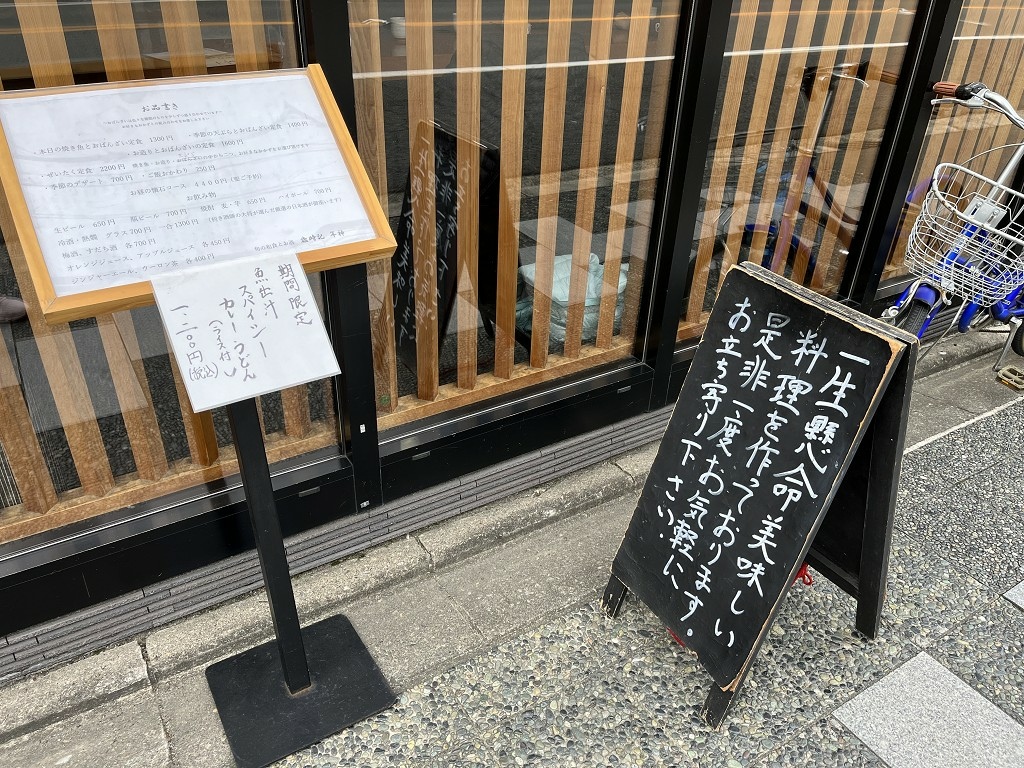 お品書き
・本日の焼き魚とおばんざい定食 1300円 ・季節の天ぷらとおばんざい定食 1400円
・お造りとおばんざいの定食 1600円
・ぜいたく定食 2200円
・季節のデザート 700円 ・ご飯おかわり 250円
お昼の懐石コース 4400円(要ご予約)
お飲み物
生ビール 650円 瓶ビール 700円 焼酎 麦・芋 650円 ハイボール 700円
冷酒・熱燗 グラス700円 一合1300円
梅酒、すだち酒 各700円
オレンジジュース、アップルジュース 各450円
ジンジャーエール、ウーロン茶 各400円
期間限定
魚出汁
スパイシー
カレーうどん
(ライス付)
一、二〇〇円
(税込)
一生懸命美味しい
料理を作っております。
是非一度お気軽に
お立ち寄り下さい